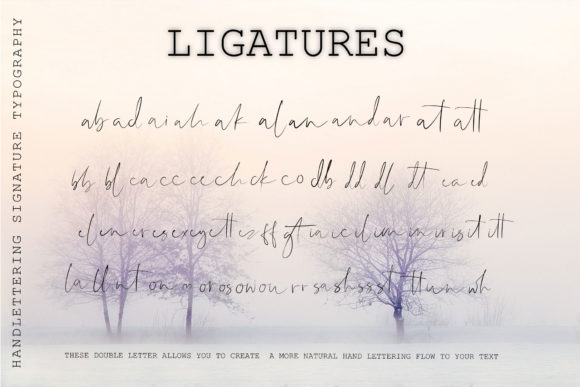 LIGATURES
HANDLETTERING SIGNATURE TYPOGRAPHY
ab ad ai ah ak al an and ar at att
bb bl ca cc ce ch ck co db dd dl dt ea ed
el en er es ex ey ett ez ff gt ia ic il im in ir is it itt
la ll nt on or os ow ou rr sa sh ss st tt un wh
THESE DOUBLE LETTER ALLOWS YOU TO CREATE A MORE NATURAL HAND LETTERING FLOW TO YOUR TEXT